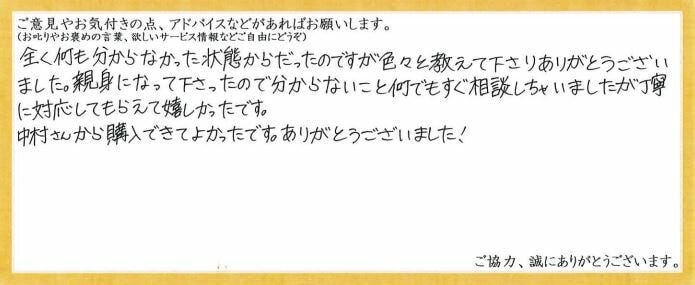 ご意見やお気付きの点、アドバイスなどがあればお願いします。
(お叱りやお褒めの言葉、欲しいサービス情報などご自由にどうぞ)
全く何も分からなかった状態からだったのですが色々と教えて下さりありがとうござい
ました。親身になって下さったので分からないこと何でもすぐ相談しちゃいましたが丁寧
に対応してもらえて嬉しかったです。
中村さんから購入できてよかったです。ありがとうございました！
ご協力、誠にありがとうございます。